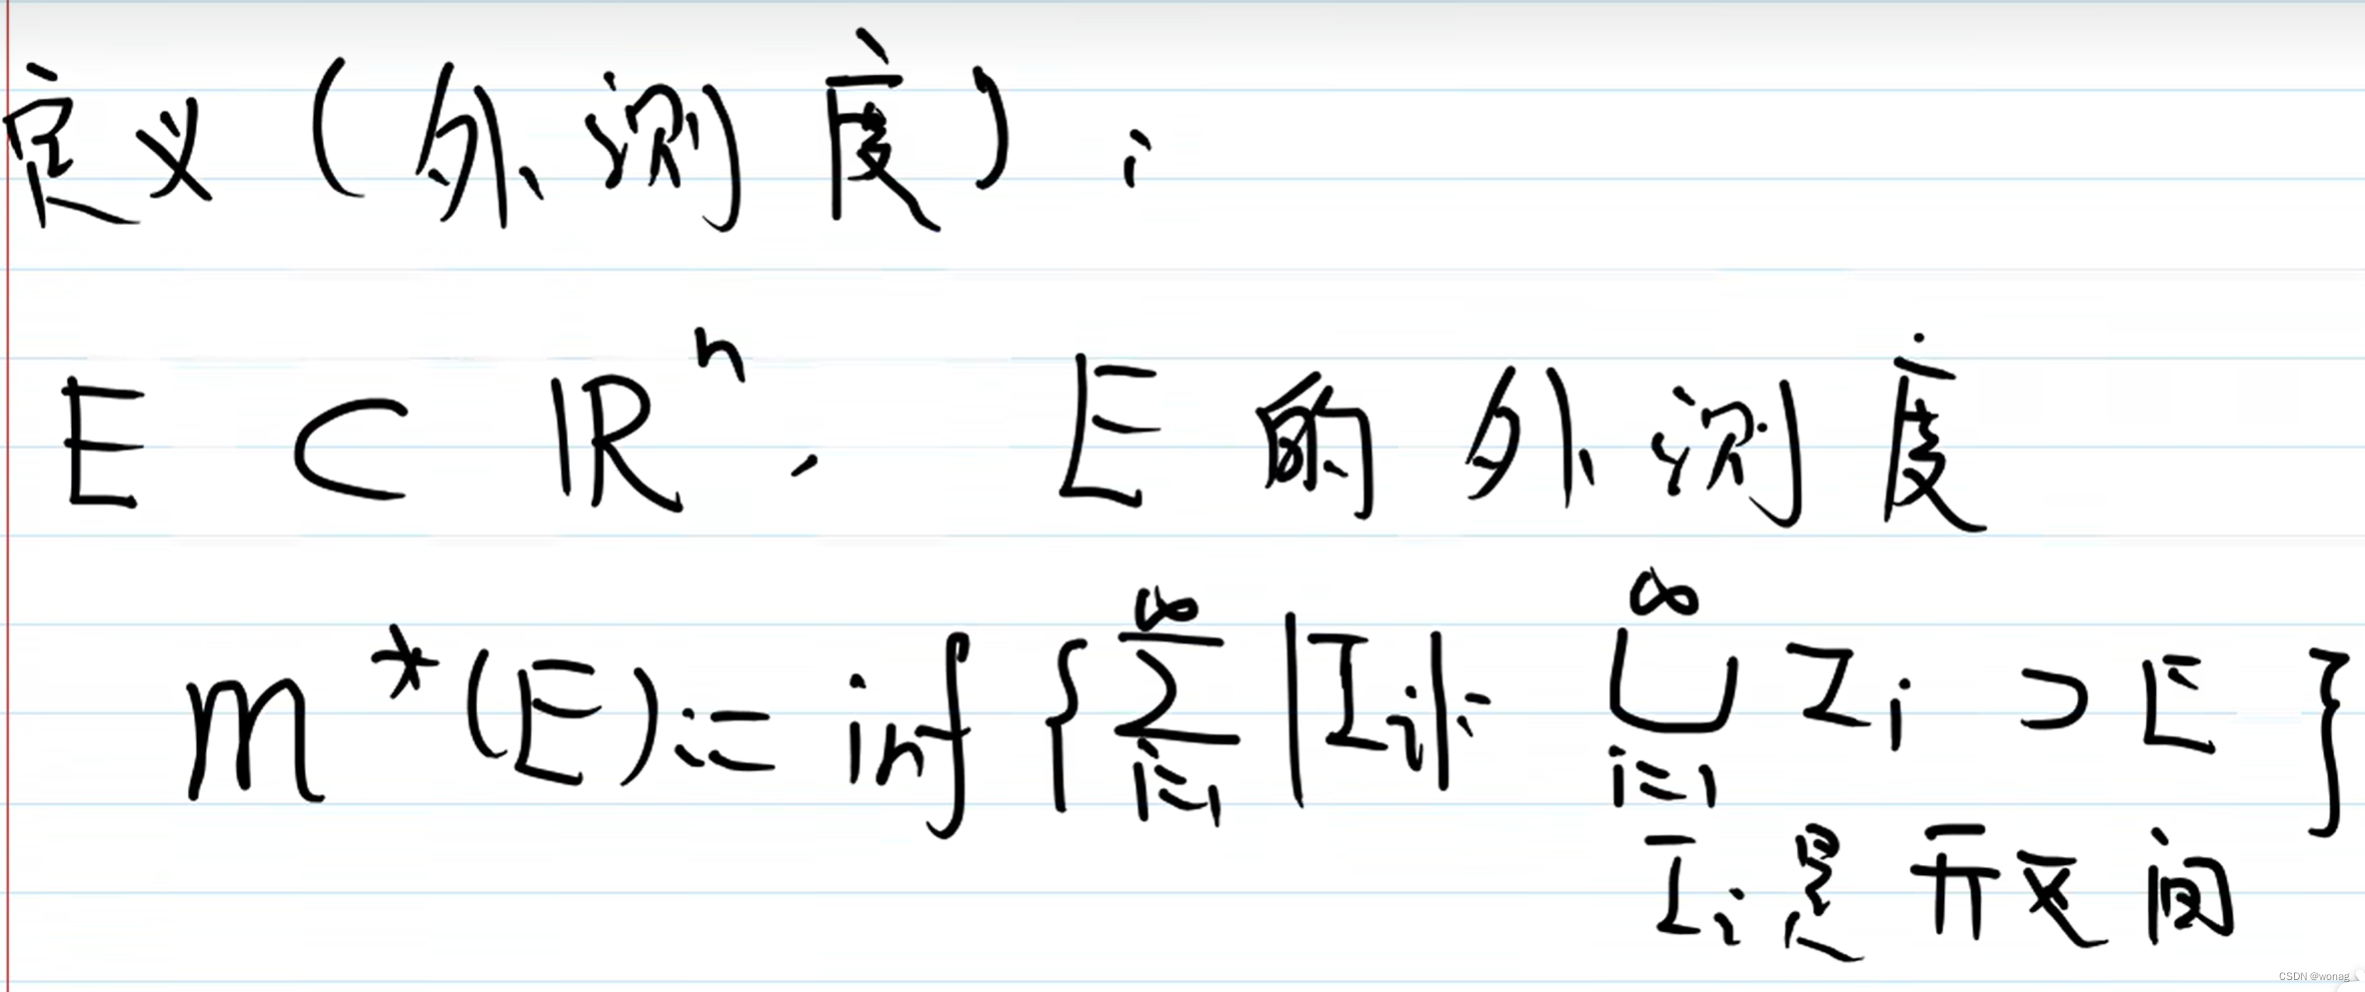 定义（外测度）：
E ⊂ ℝⁿ, E 的外测度
m*(E) := inf { ∑_{i=1}^{∞} |I_i| : ⋃_{i=1}^{∞} I_i ⊃ E }
I_i 是开区间
CSDN @wonag